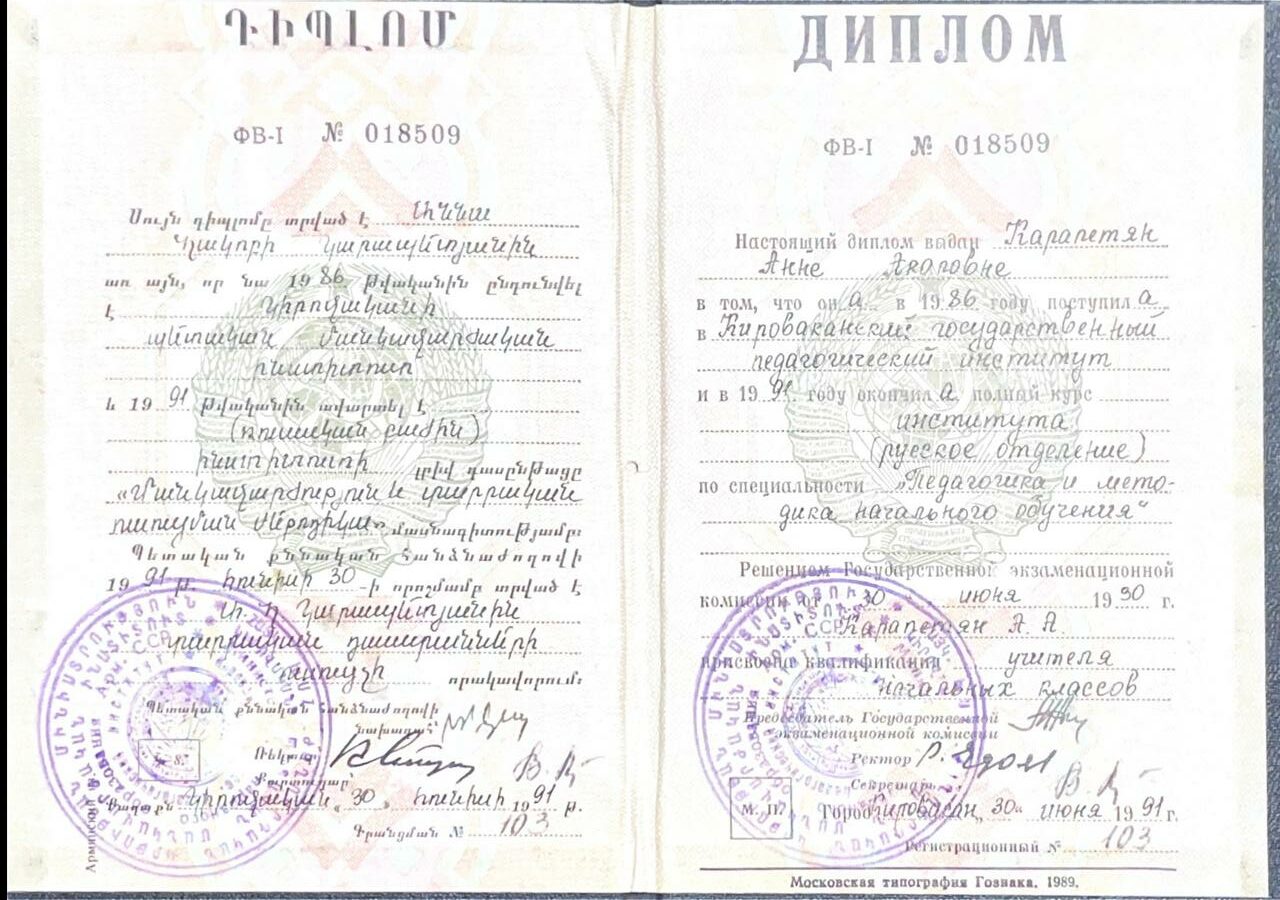 ԴԻՊԼՈՄ
ФВ-I № 018509
Սույն դիպլոմը տրված է Աննա
Հակոբի Կարապետյանին
առ այն, որ նա 1986 թվականին ընդունվել
է Կիրովականի
պետական մանկավարժական
ինստիտուտ
և 1991 թվականին ավարտել է
(ռուսական բաժին)
ինստիտուտի լրիվ դասընթացը
«Մանկավարժություն և տարրական
ուսուցման մեթոդիկա» մասնագիտությամբ։
Պետական քննական հանձնաժողովի
1991 թ. հունիսի 30-ի որոշմամբ տրված է
Ա. Հ. Կարապետյանին
տարրական դասարանների
ուսուցչի որակավորում։
Պետական քննական հանձնաժողովի
նախագահ
Ռեկտոր
Քարտուղար
Քաղաք Կիրովական «30» հունիսի 1991 թ.
Գրանցման № 103
ДИПЛОМ
ФВ-I № 018509
Настоящий диплом выдан Карапетян
Анне Акоповне
в том, что он а в 1986 году поступил а
в Кироваканский государственный
педагогический институт
и в 1991 году окончил а полный курс
института
(русское отделение)
по специальности „Педагогика и мето-
дика начального обучения“
Решением Государственной экзаменационной
комиссии от 30 июня 1990 г.
Карапетян А. А.
присвоена квалификация учителя
начальных классов
Председатель Государственной
экзаменационной комиссии
Ректор
Секретарь
М. П.
Город Кировакан, 30 июня 1991 г.
Регистрационный № 103
Московская типография Гознака. 1989.